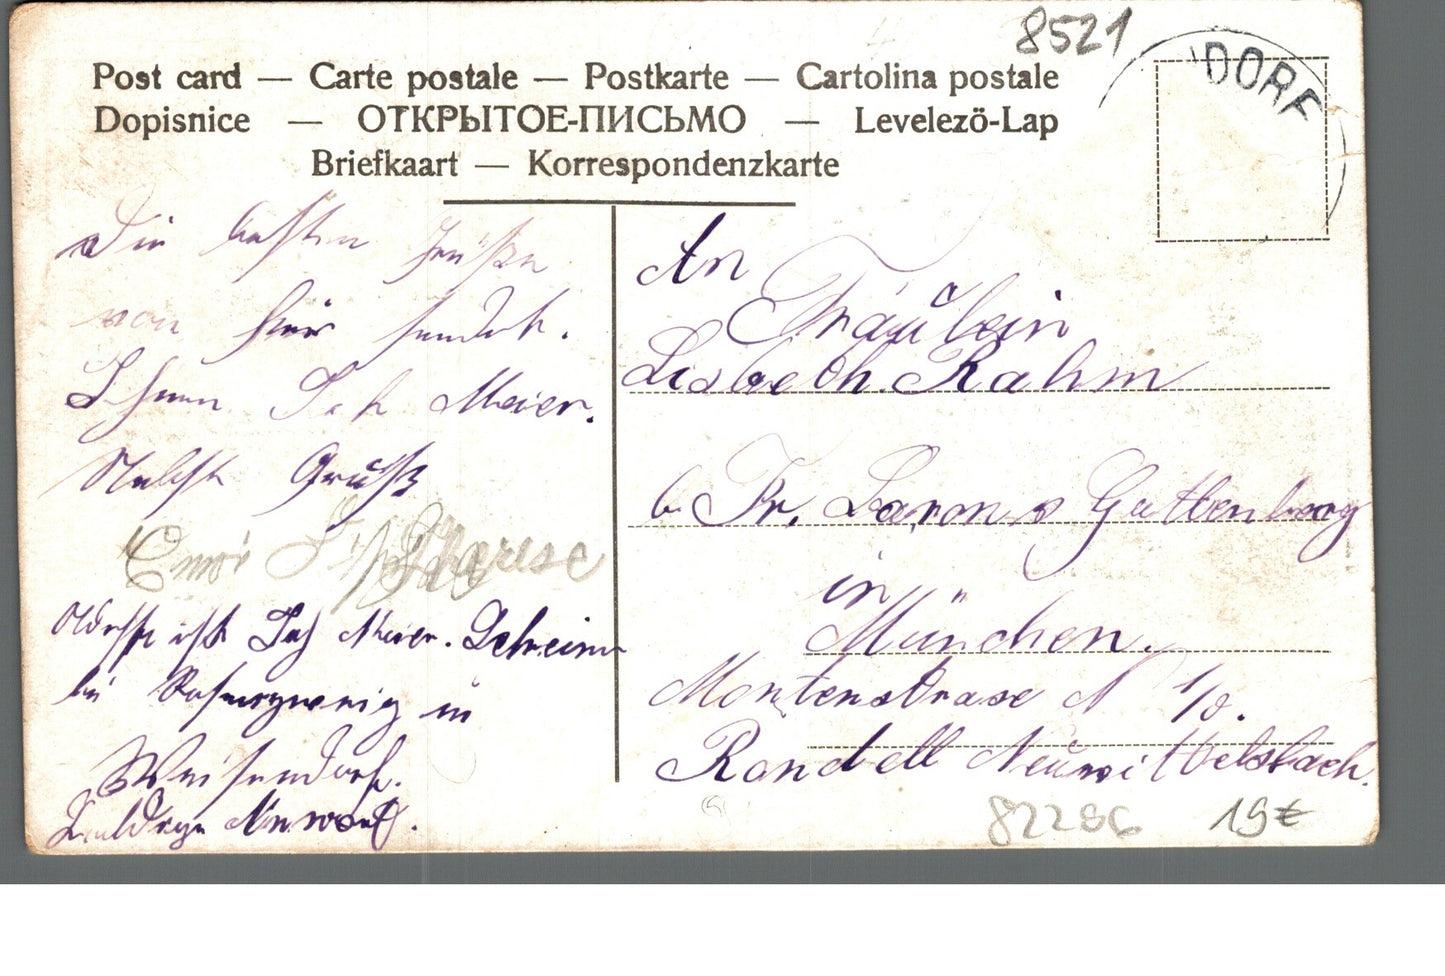 8521
DORF
Post card — Carte postale — Postkarte — Cartolina postale
Dopisnice — ОТКРЫТОЕ-ПИСЬМО — Levelezö-Lap
Briefkaart — Korrespondenzkarte
Die besten Grüße
von hier sendet.
Ihnen Joh Meier.
Nebst Gruß
Therese
Adresse ist Joh Meier. Schreiner
bei in
Weisendorf.
An
Fräulein
Lisbeth. Rahm
b. Fr. Baron v Guttenberg
in
München.
Montenstrase N 1/0.
Rondell Neuwittelsbach.
82286 19€